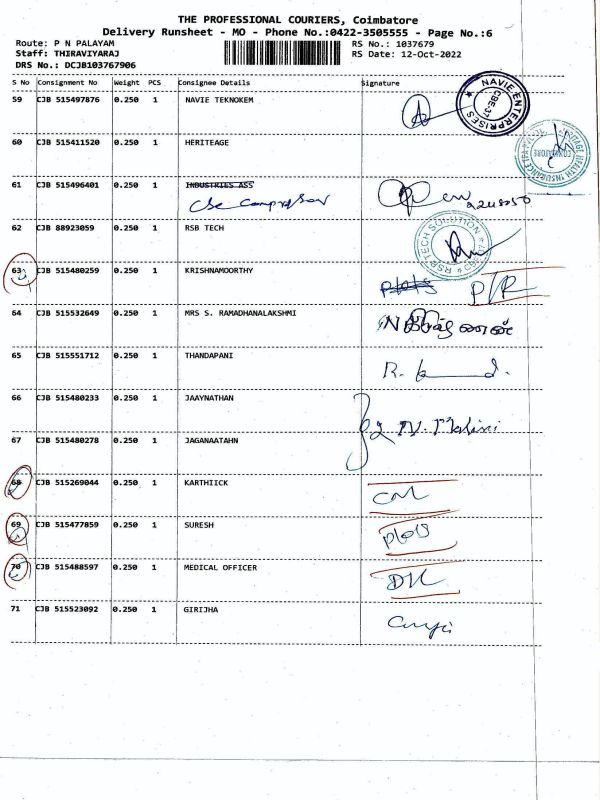 THE PROFESSIONAL COURIERS, Coimbatore
Delivery Runsheet - MO - Phone No.:0422-3505555 - Page No.:6
Route: P N PALAYAM RS No.: 1037679
Staff: THIRAVIYARAJ RS Date: 12-Oct-2022
DRS No.: DCJB103767906
S No Consignment No Weight PCS Consignee Details Signature
59 CJB 515497876 0.250 1 NAVIE TEKNOKEM
NAVIE ENTERPRISES
CBE-37
60 CJB 515411520 0.250 1 HERITEAGE
61 CJB 515496401 0.250 1 INDUSTRIES ASS
62 CJB 88923059 0.250 1 RSB TECH
63 CJB 515480259 0.250 1 KRISHNAMOORTHY
P/R
64 CJB 515532649 0.250 1 MRS S. RAMADHANALAKSHMI
65 CJB 515551712 0.250 1 THANDAPANI
66 CJB 515480233 0.250 1 JAAYNATHAN
N. Malini
67 CJB 515480278 0.250 1 JAGANAATAHN
68 CJB 515269044 0.250 1 KARTHIICK
69 CJB 515477859 0.250 1 SURESH
70 CJB 515488597 0.250 1 MEDICAL OFFICER
71 CJB 515523092 0.250 1 GIRIJHA